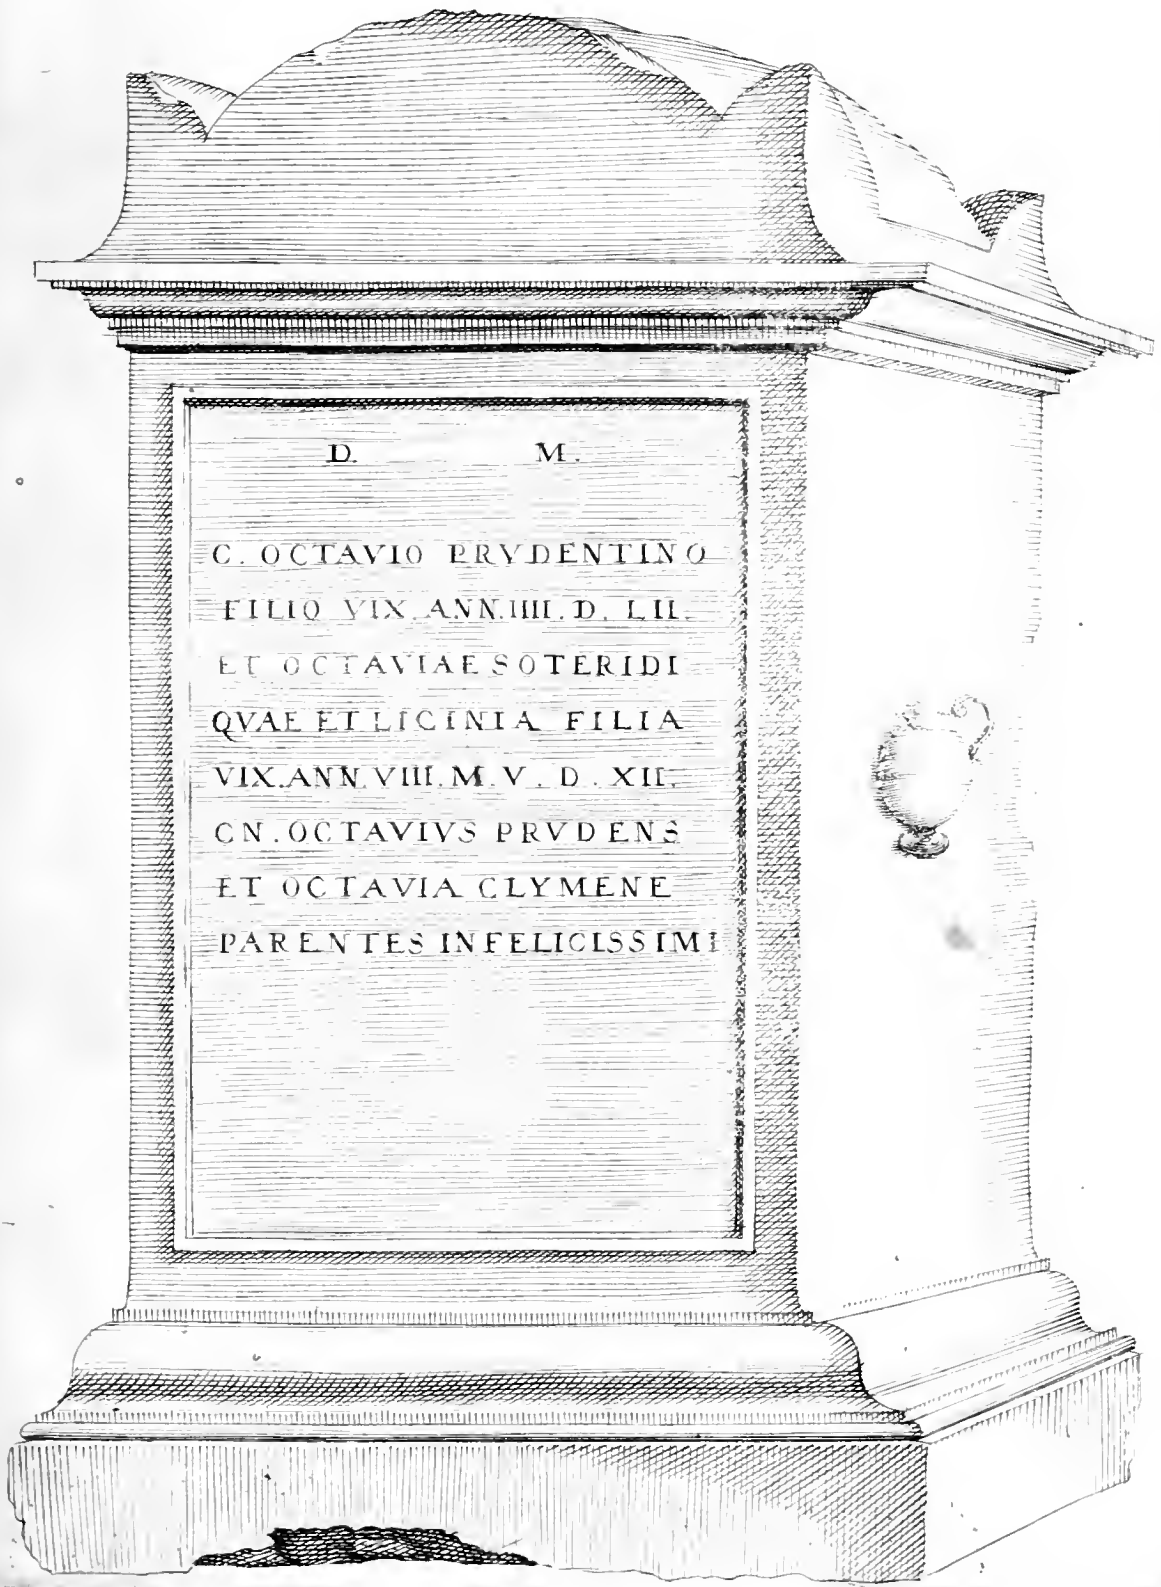 D. M.
C. OCTAVIO PRVDENTINO
FILIO VIX. ANN. IIII. D. LII.
ET OCTAVIAE SOTERIDI
QVAE ET LICINIA FILIA
VIX. ANN. VIII. M. V. D. XII.
CN. OCTAVIVS PRVDENS
ET OCTAVIA CLYMENE
PARENTES INFELICISSIMI